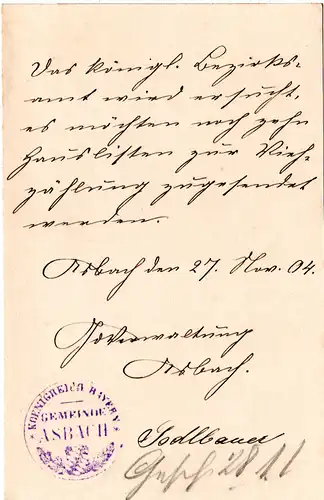 Das königl. Bezirks-
amt wird ersucht,
es möchten noch zehn
Hauslisten zur Vieh-
zählung zugesendet
werden.
Asbach den 27. Nov. 04.
Gdeverwaltung
Asbach.
Sedlbauer
KOENIGREICH BAYERN
GEMEINDE
ASBACH
Gesch 28 11